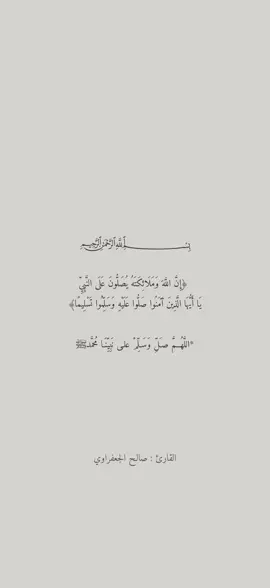 بسم الله الرحمن الرحيم
﴿إِنَّ اللَّهَ وَمَلَائِكَتَهُ يُصَلُّونَ عَلَى النَّبِيِّ
يَا أَيُّهَا الَّذِينَ آمَنُوا صَلُّوا عَلَيْهِ وَسَلِّمُوا تَسْلِيمًا﴾
*اللَّهُمَّ صَلِّ وَسَلِّمْ على نَبِيِّنَا مُحَمَّدﷺ
القارئ : صالح الجعفراوي